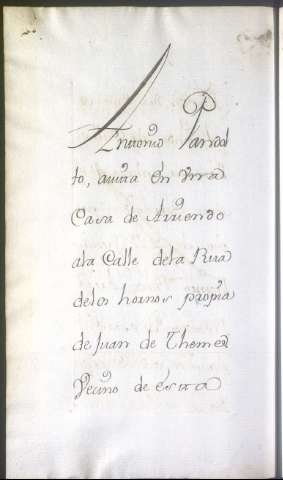 Antonio Parral
to, avita en vna
Casa de Arriendo
ala Calle dela Rua
delos hornos propia
de Juan de Themes
Vecino de esta